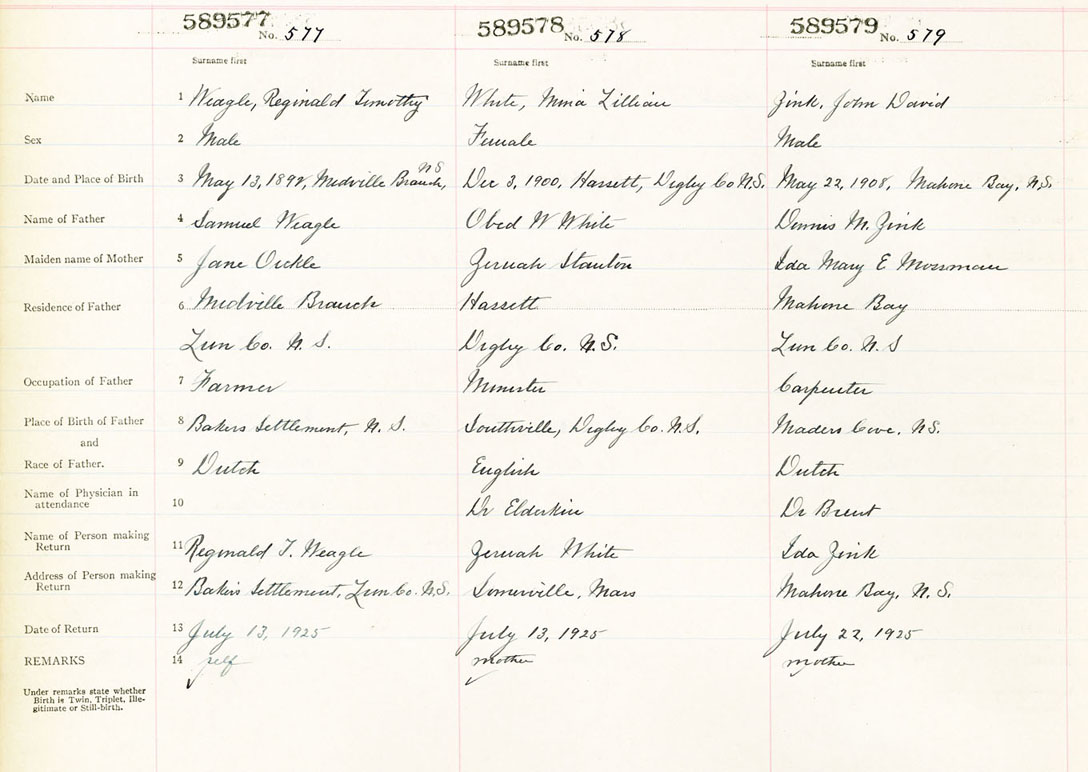 589577 No. 577 589578 No. 578 589579 No. 579
Surname first Surname first Surname first
Name 1 Weagle, Reginald Timothy White, Mina Lillian Zink, John David
Sex 2 Male Female Male
N S
Date and Place of Birth 3 May 13, 1892, Midville Branch, Dec 3, 1900, Hassett, Digby Co N.S. May 22, 1908, Mahone Bay, N.S.
Name of Father 4 Samuel Weagle Obed W White Dennis M. Zink
Maiden name of Mother 5 Jane Oickle Zeruah Stanton Ida Mary E Mossman
Residence of Father 6 Midville Branch Hassett Mahone Bay
Lun Co. N. S. Digby Co. N.S. Lun Co. N. S
Occupation of Father 7 Farmer Minister Carpenter
Place of Birth of Father 8 Bakers Settlement, N. S. Southville, Digby Co. N.S. Maders Cove, NS.
and
Race of Father. 9 Dutch English Dutch
Name of Physician in
attendance 10 Dr Elderkin Dr Brent
Name of Person making
Return 11 Reginald T. Weagle Zeruah White Ida Zink
Address of Person making
Return 12 Bakers Settlement, Lun Co. N.S. Somerville, Mass Mahone Bay, N. S.
Date of Return 13 July 13, 1925 July 13, 1925 July 22, 1925
REMARKS 14 self mother mother
Under remarks state whether
Birth is Twin, Triplet, Ille-
gitimate or Still-birth.